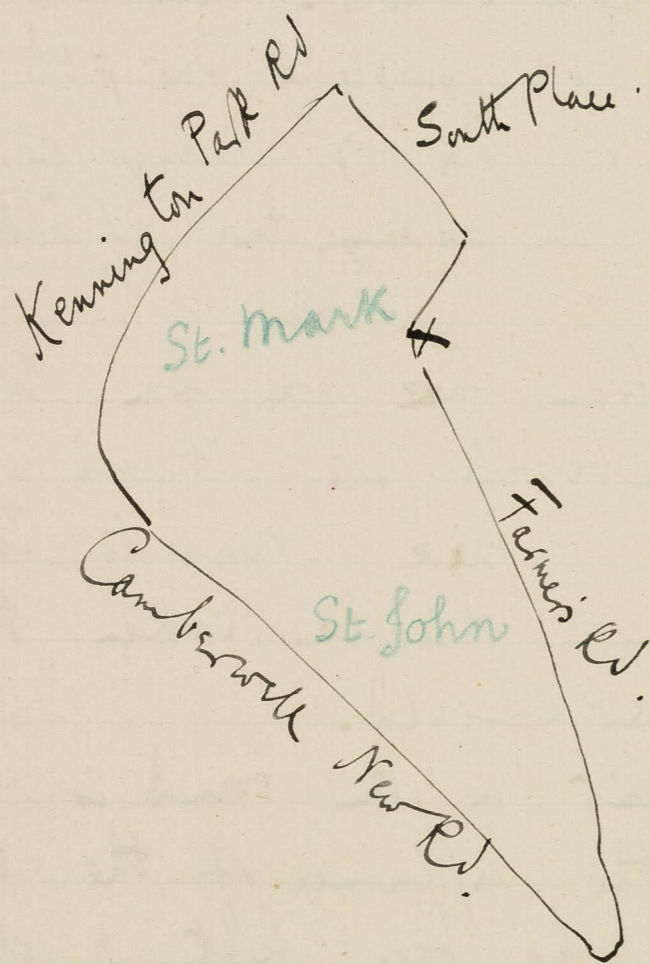 Kennington Park Rd
South Place.
St. Mark
Farmer's Rd.
St. John
Camberwell New Rd.